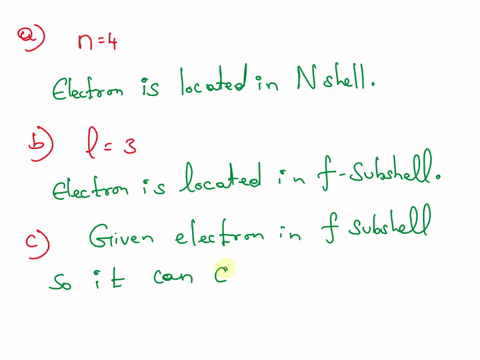 a) n=4
Electron is located in N shell.
b) l = 3
Electron is located in f-subshell.
c) Given electron in f subshell
so it can c